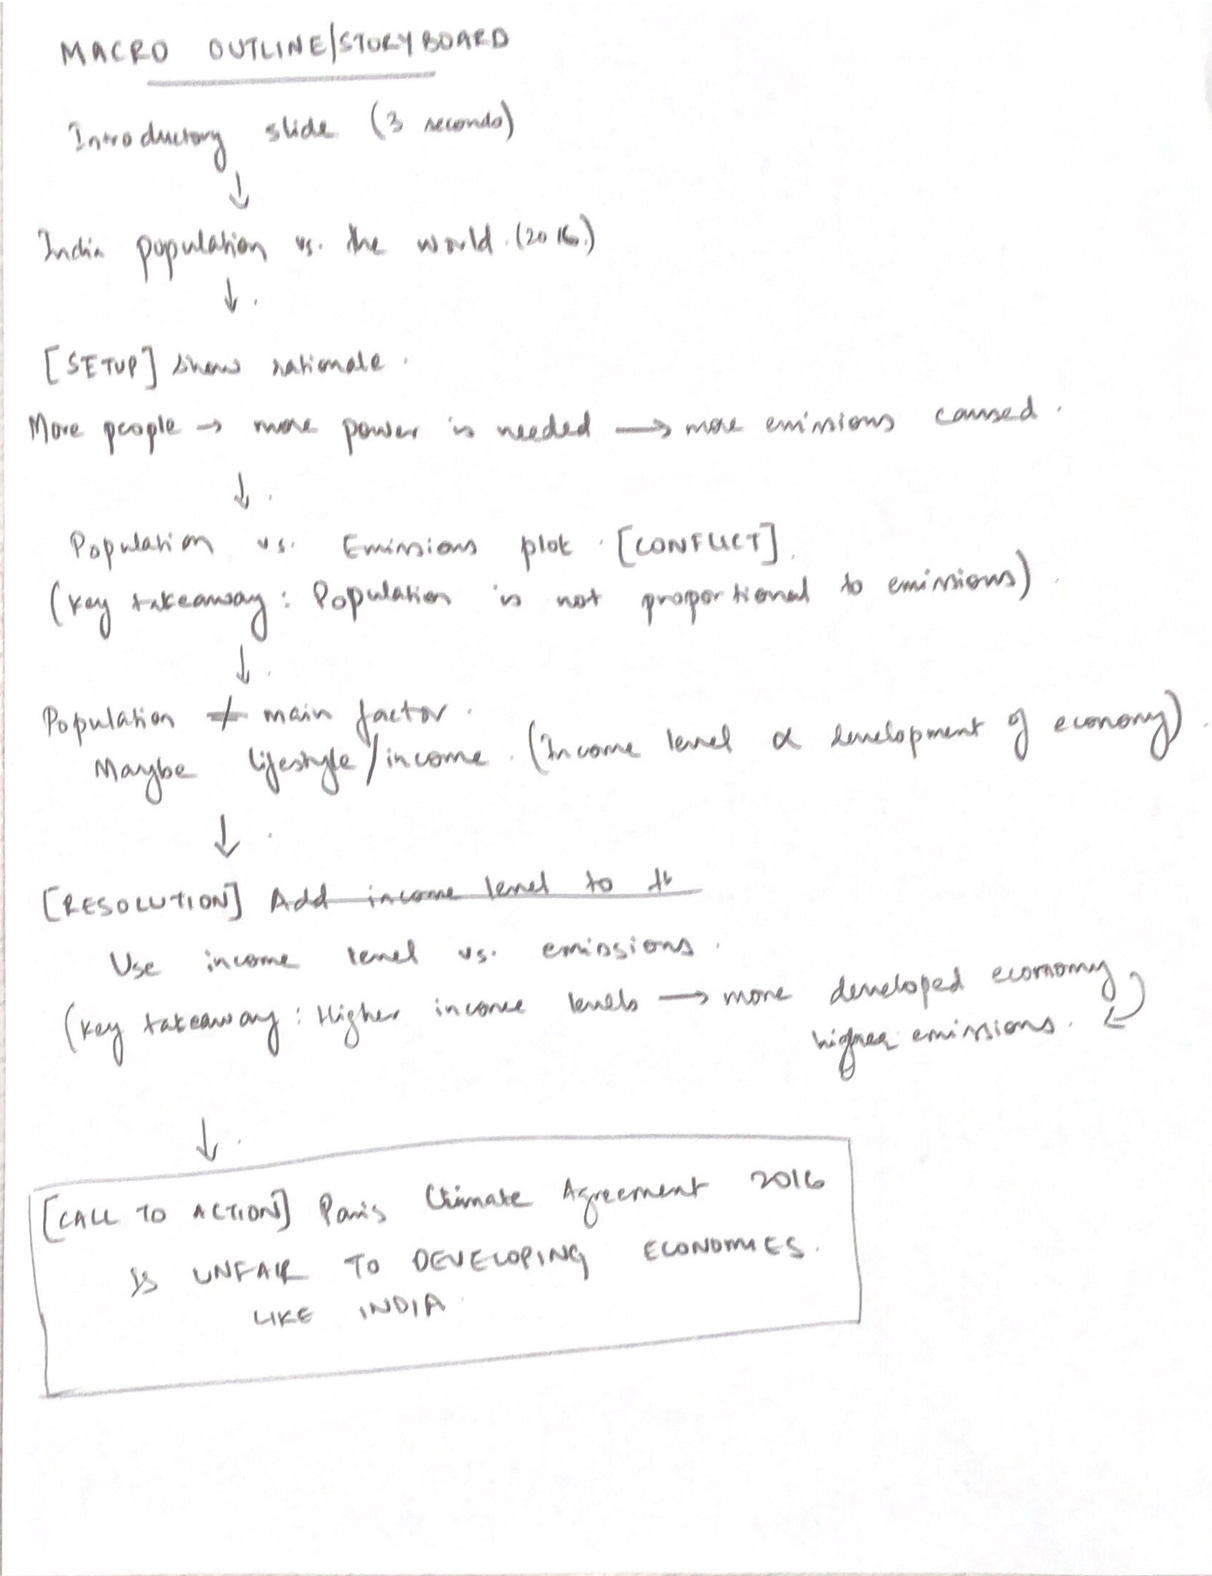 MACRO OUTLINE/STORYBOARD
Introductory slide (3 seconds)
↓
India population vs. the world. (2016.)
↓.
[SETUP] Show rationale.
More people → more power is needed → more emissions caused.
↓.
Population vs. Emissions plot. [CONFLICT].
(Key takeaway: Population is not proportional to emissions).
↓.
Population ≠ main factor.
Maybe lifestyle/income. (Income level α development of economy).
↓.
[RESOLUTION] Add income level to th
Use income level vs. emissions.
(Key takeaway: Higher income levels → more developed economy
higher emissions.
↓.
[CALL TO ACTION] Paris Climate Agreement 2016
IS UNFAIR TO DEVELOPING ECONOMIES.
LIKE INDIA